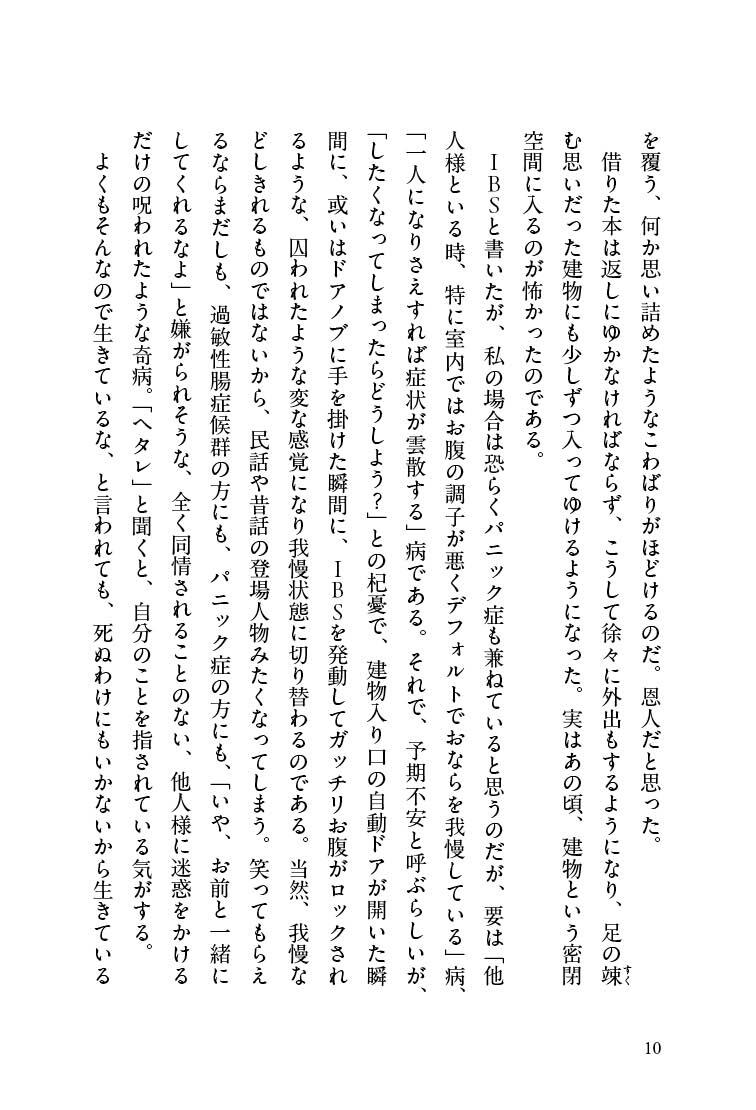 を覆う、何か思い詰めたようなこわばりがほどけるのだ。恩人だと思った。
　借りた本は返しにゆかなければならず、こうして徐々に外出もするようになり、足の竦
すく
む思いだった建物にも少しずつ入ってゆけるようになった。実はあの頃、建物という密閉
空間に入るのが怖かったのである。
　ＩＢＳと書いたが、私の場合は恐らくパニック症も兼ねていると思うのだが、要は「他
人様といる時、特に室内ではお腹の調子が悪くデフォルトでおならを我慢している」病、
「一人になりさえすれば症状が雲散する」病である。それで、予期不安と呼ぶらしいが、
「したくなってしまったらどうしよう？」との杞憂で、建物入り口の自動ドアが開いた瞬
間に、或いはドアノブに手を掛けた瞬間に、ＩＢＳを発動してガッチリお腹がロックされ
るような、囚われたような変な感覚になり我慢状態に切り替わるのである。当然、我慢な
どしきれるものではないから、民話や昔話の登場人物みたくなってしまう。笑ってもらえ
るならまだしも、過敏性腸症候群の方にも、パニック症の方にも、「いや、お前と一緒に
してくれるなよ」と嫌がられそうな、全く同情されることのない、他人様に迷惑をかける
だけの呪われたような奇病。「ヘタレ」と聞くと、自分のことを指されている気がする。
　よくもそんなので生きているな、と言われても、死ぬわけにもいかないから生きている
10